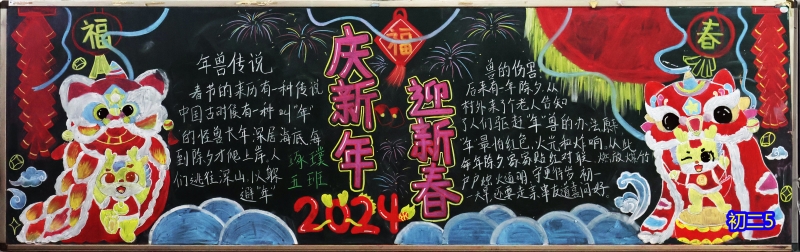 福
年兽传说
春节的来历有一种传说
中国古时候有一种叫“年”
的怪兽长年深居海底，每
到除夕才爬上岸，人
们逃往深山，以躲
避“年”
海璞
五班
庆新年
福
迎新春
2024
兽的伤害
后来有一年除夕，从
村外来了个老人告知
了人们驱赶“年”兽的办法原来
“年”最怕红色、火光和炸响，从此
每年除夕家家贴红对联、燃放爆竹
户户烛火通明、守更待岁初一
一大早还要走亲串友道喜问好
春
初二5